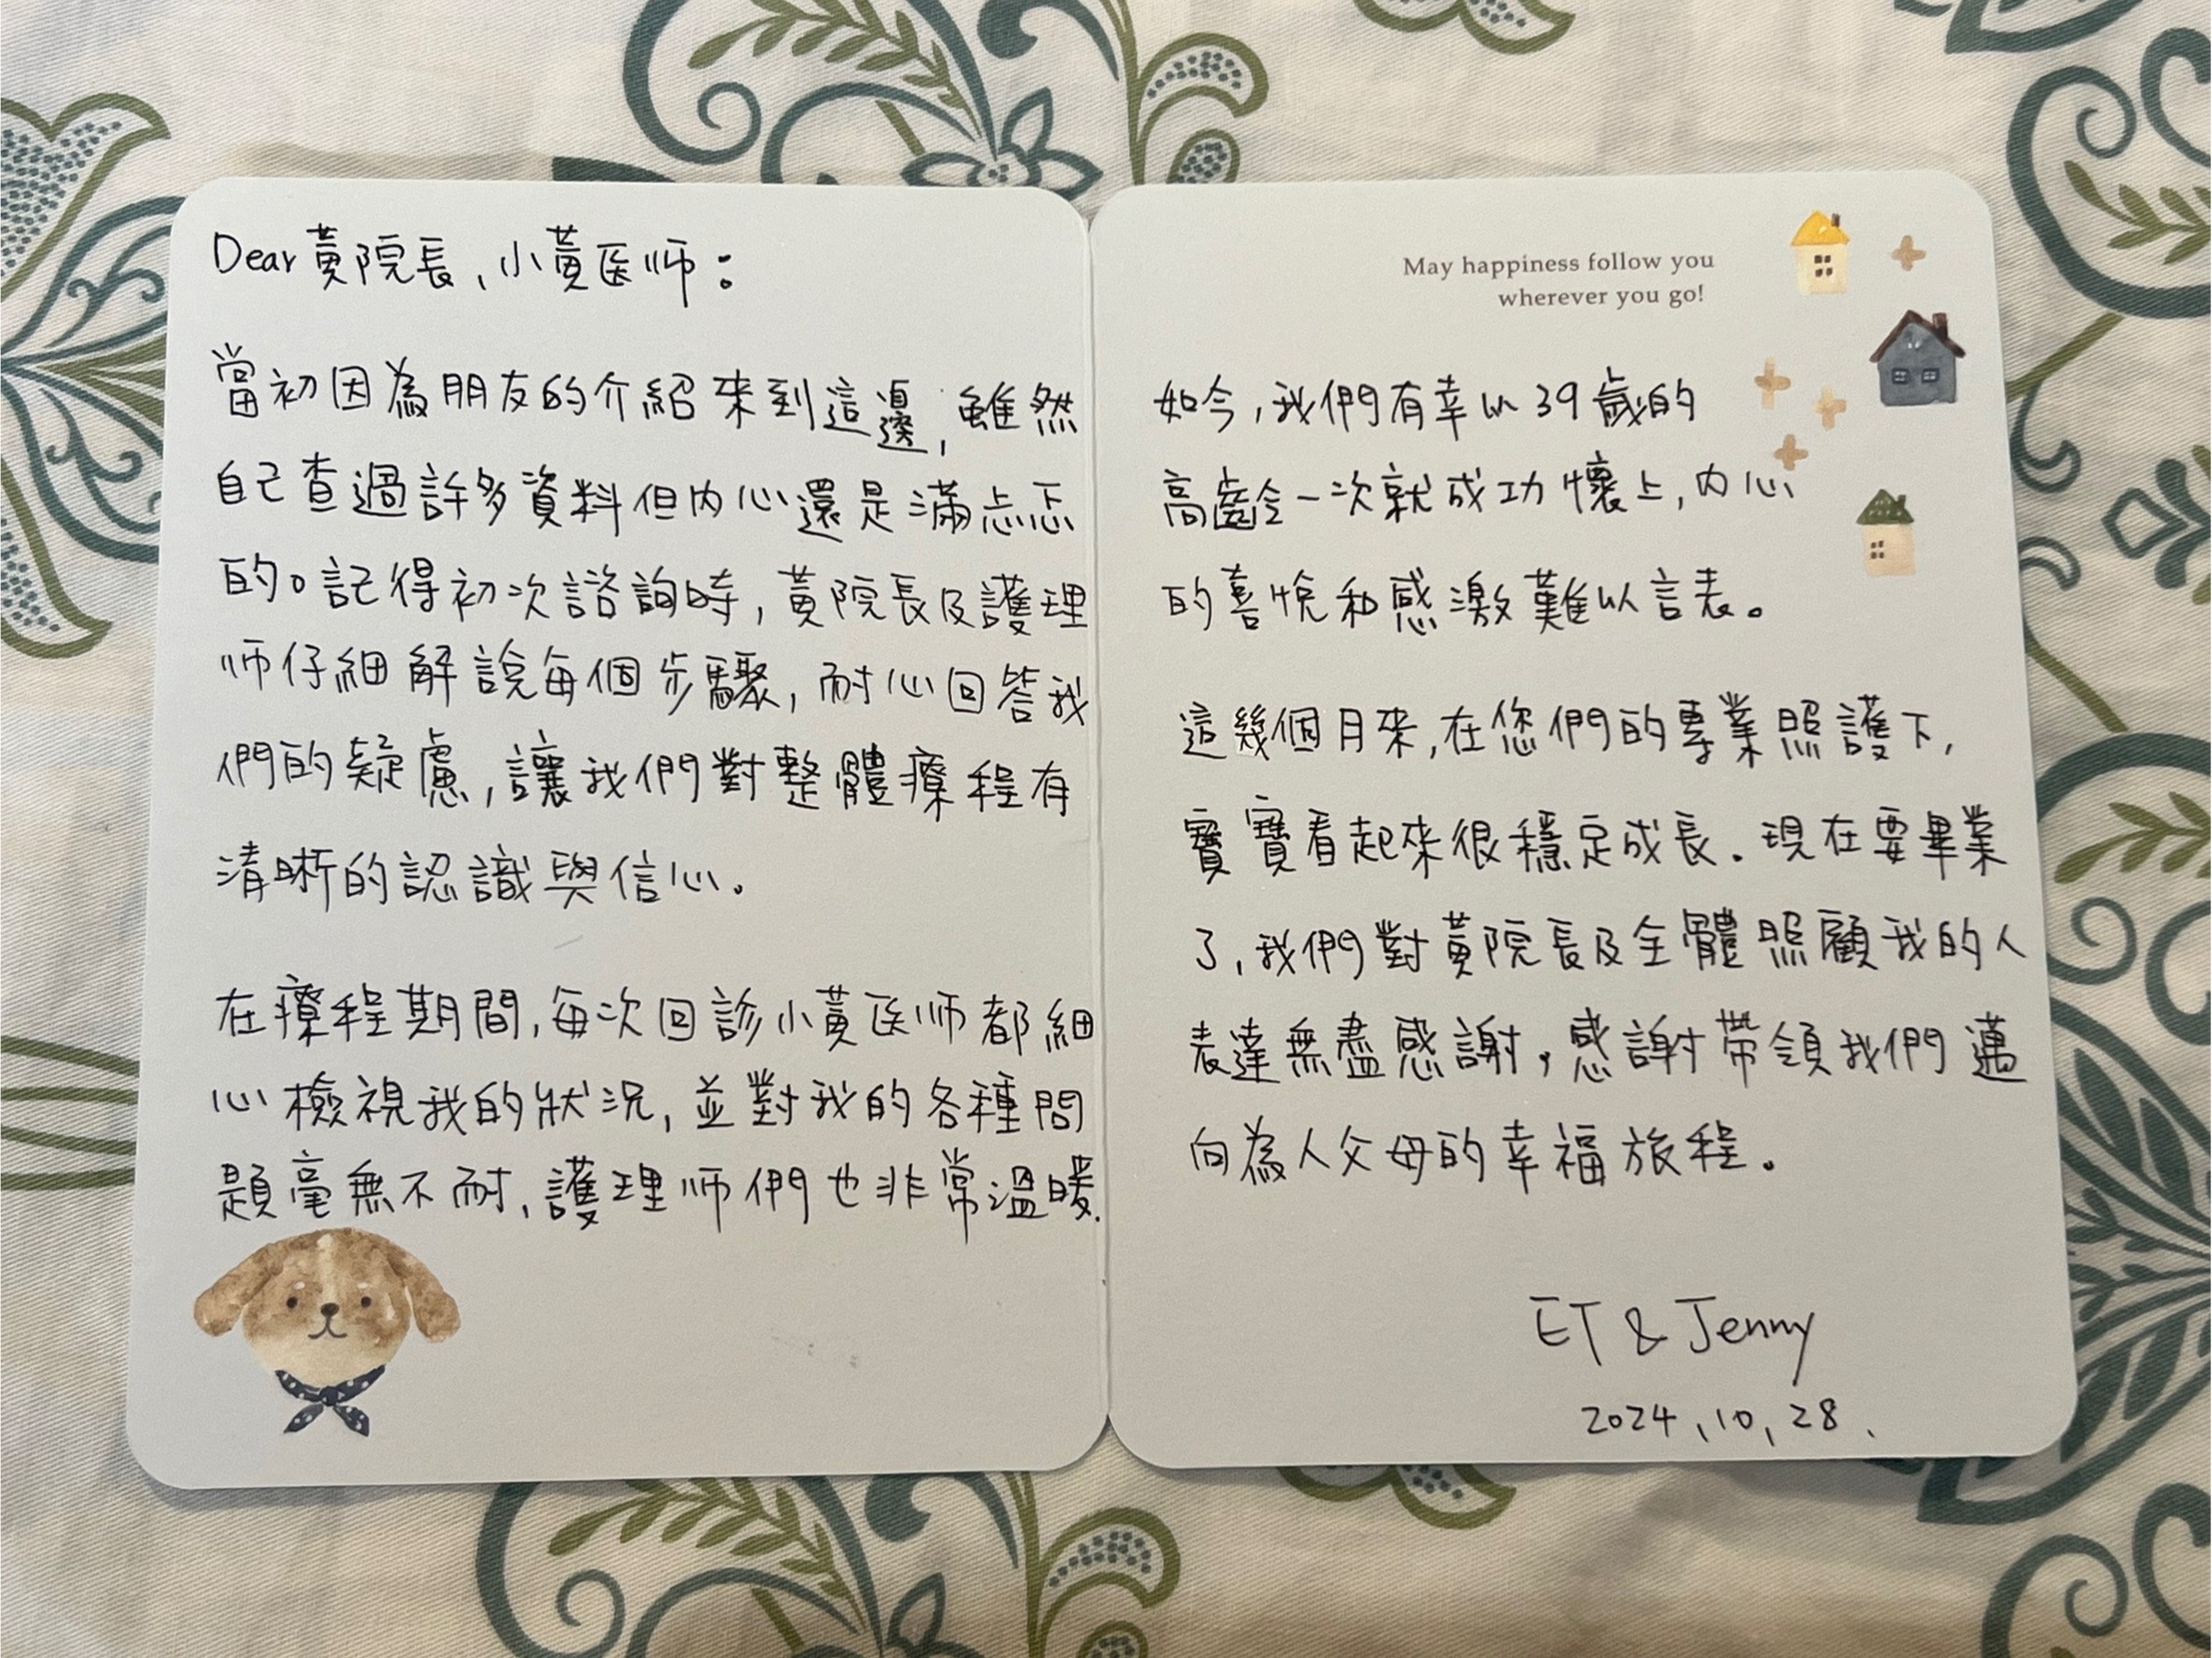 Dear 黃院長,小黃医师:
當初因為朋友的介紹來到這邊,雖然
自己查過許多資料但內心還是滿忐忑
的。記得初次諮詢時,黃院長及護理
师仔細解說每個步驟,耐心回答我
們的疑慮,讓我們對整體療程有
清晰的認識與信心。
在療程期間,每次回診小黃医师都細
心檢視我的狀況,並對我的各種問
題毫無不耐,護理师們也非常溫暖.
May happiness follow you
wherever you go!
如今,我們有幸以39歲的
高齡一次就成功懷上,內心
的喜悅和感激難以言表。
這幾個月來,在您們的專業照護下,
寶寶看起來很穩定成長.現在要畢業
了,我們對黃院長及全體照顧我的人
表達無盡感謝,感謝帶領我們邁
向為人父母的幸福旅程。
ET & Jenny
2024,10,28.